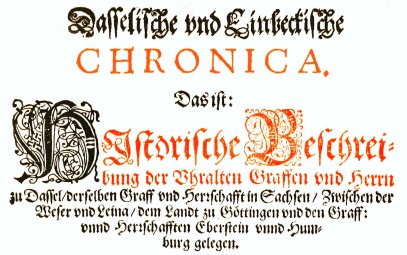 Dasselische vnd Einbeckische
CHRONICA.
Das ist:
HIstorische Beschrei-
bung der Vhralten Graffen vnd Herrn
zu Dassel/derselben Graff vnd Herꝛschafft in Sachsen/ Zwischen der
Weser vnd Leina/ dem Landt zu Göttingen vnd den Graff:
vnnd Herꝛschafften Eberstein vnnd Hum-
burg gelegen.